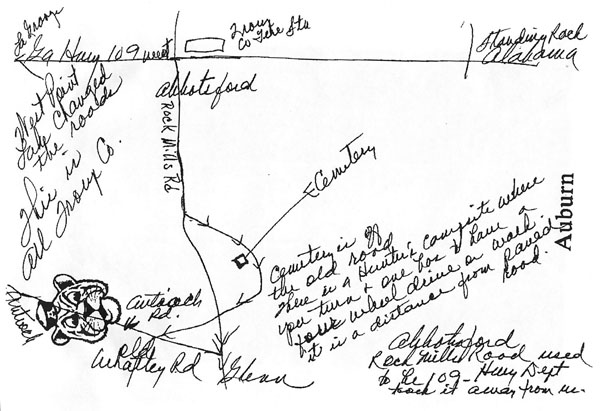 La Grange
Ga Hwy 109 west
Troup
Co Fire Stn
Standing Rock
Alabama
Abbotsford
West Point
Lake changed
the roads
This is
all Troup Co.
Rock Mills Rd
Cemetery
Cemetery is off
the old road
There is a Hunter's campsite where
you turn & one has to have a
four wheel drive or walk
it is a distance from paved
road.
Auburn
Antioch
Antioch
Rd.
Old
Whatley Rd
Glenn
Abbotsford
Rock Mills Road used
to be 109 - Hwy Dept
took it away from us.